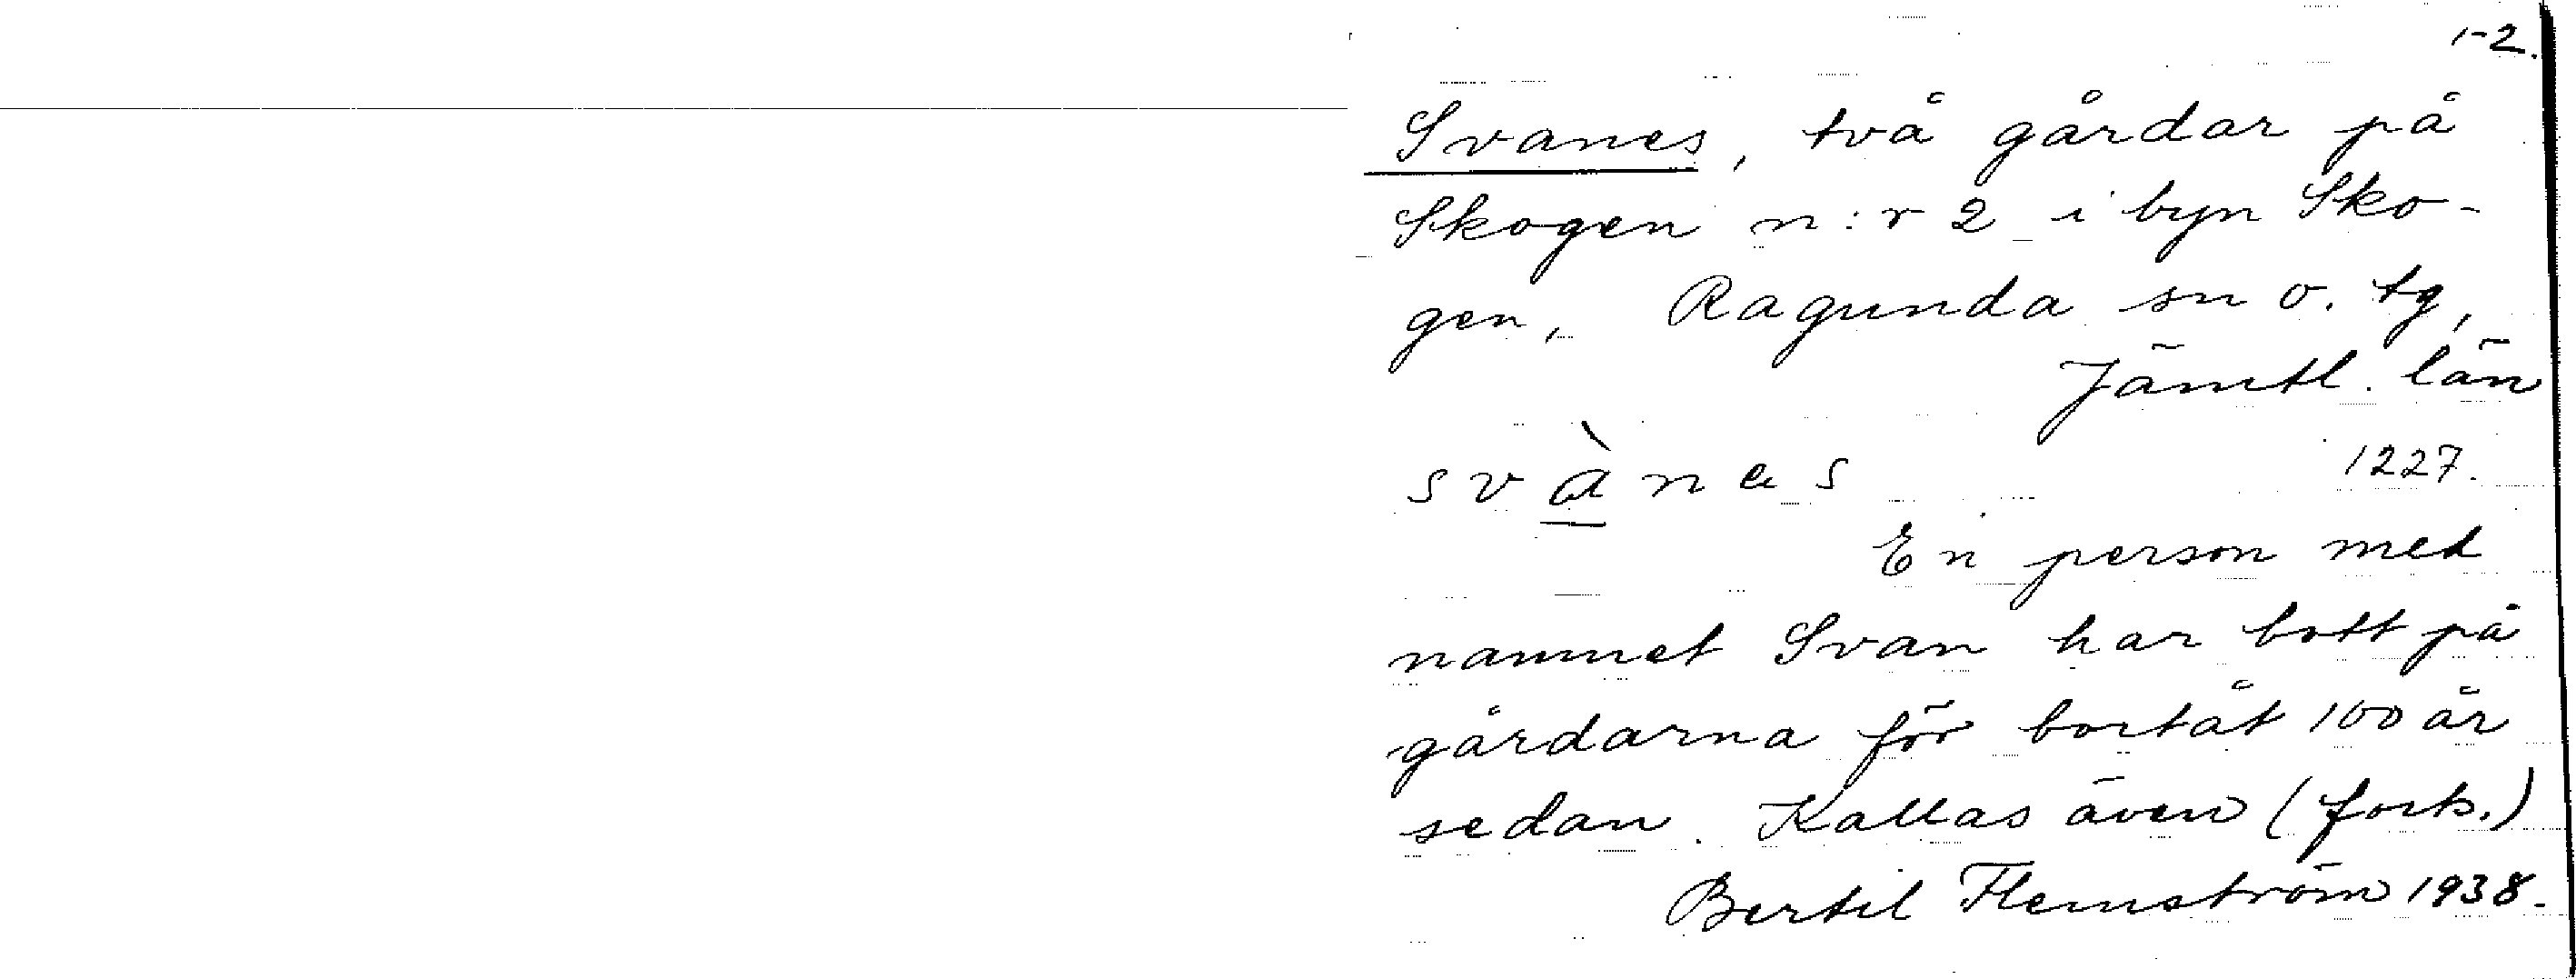 1-2.
Svanes, två gårdar på
Skogen n:r 2 i byn Sko-
gen, Ragunda sn o. tg,
Jämtl. län
svànes 1227.
En person med
namnet Svan har bott på
gårdarna för bortåt 100 år
sedan. Kallas även (forts.)
Bertil Flemström 1938.